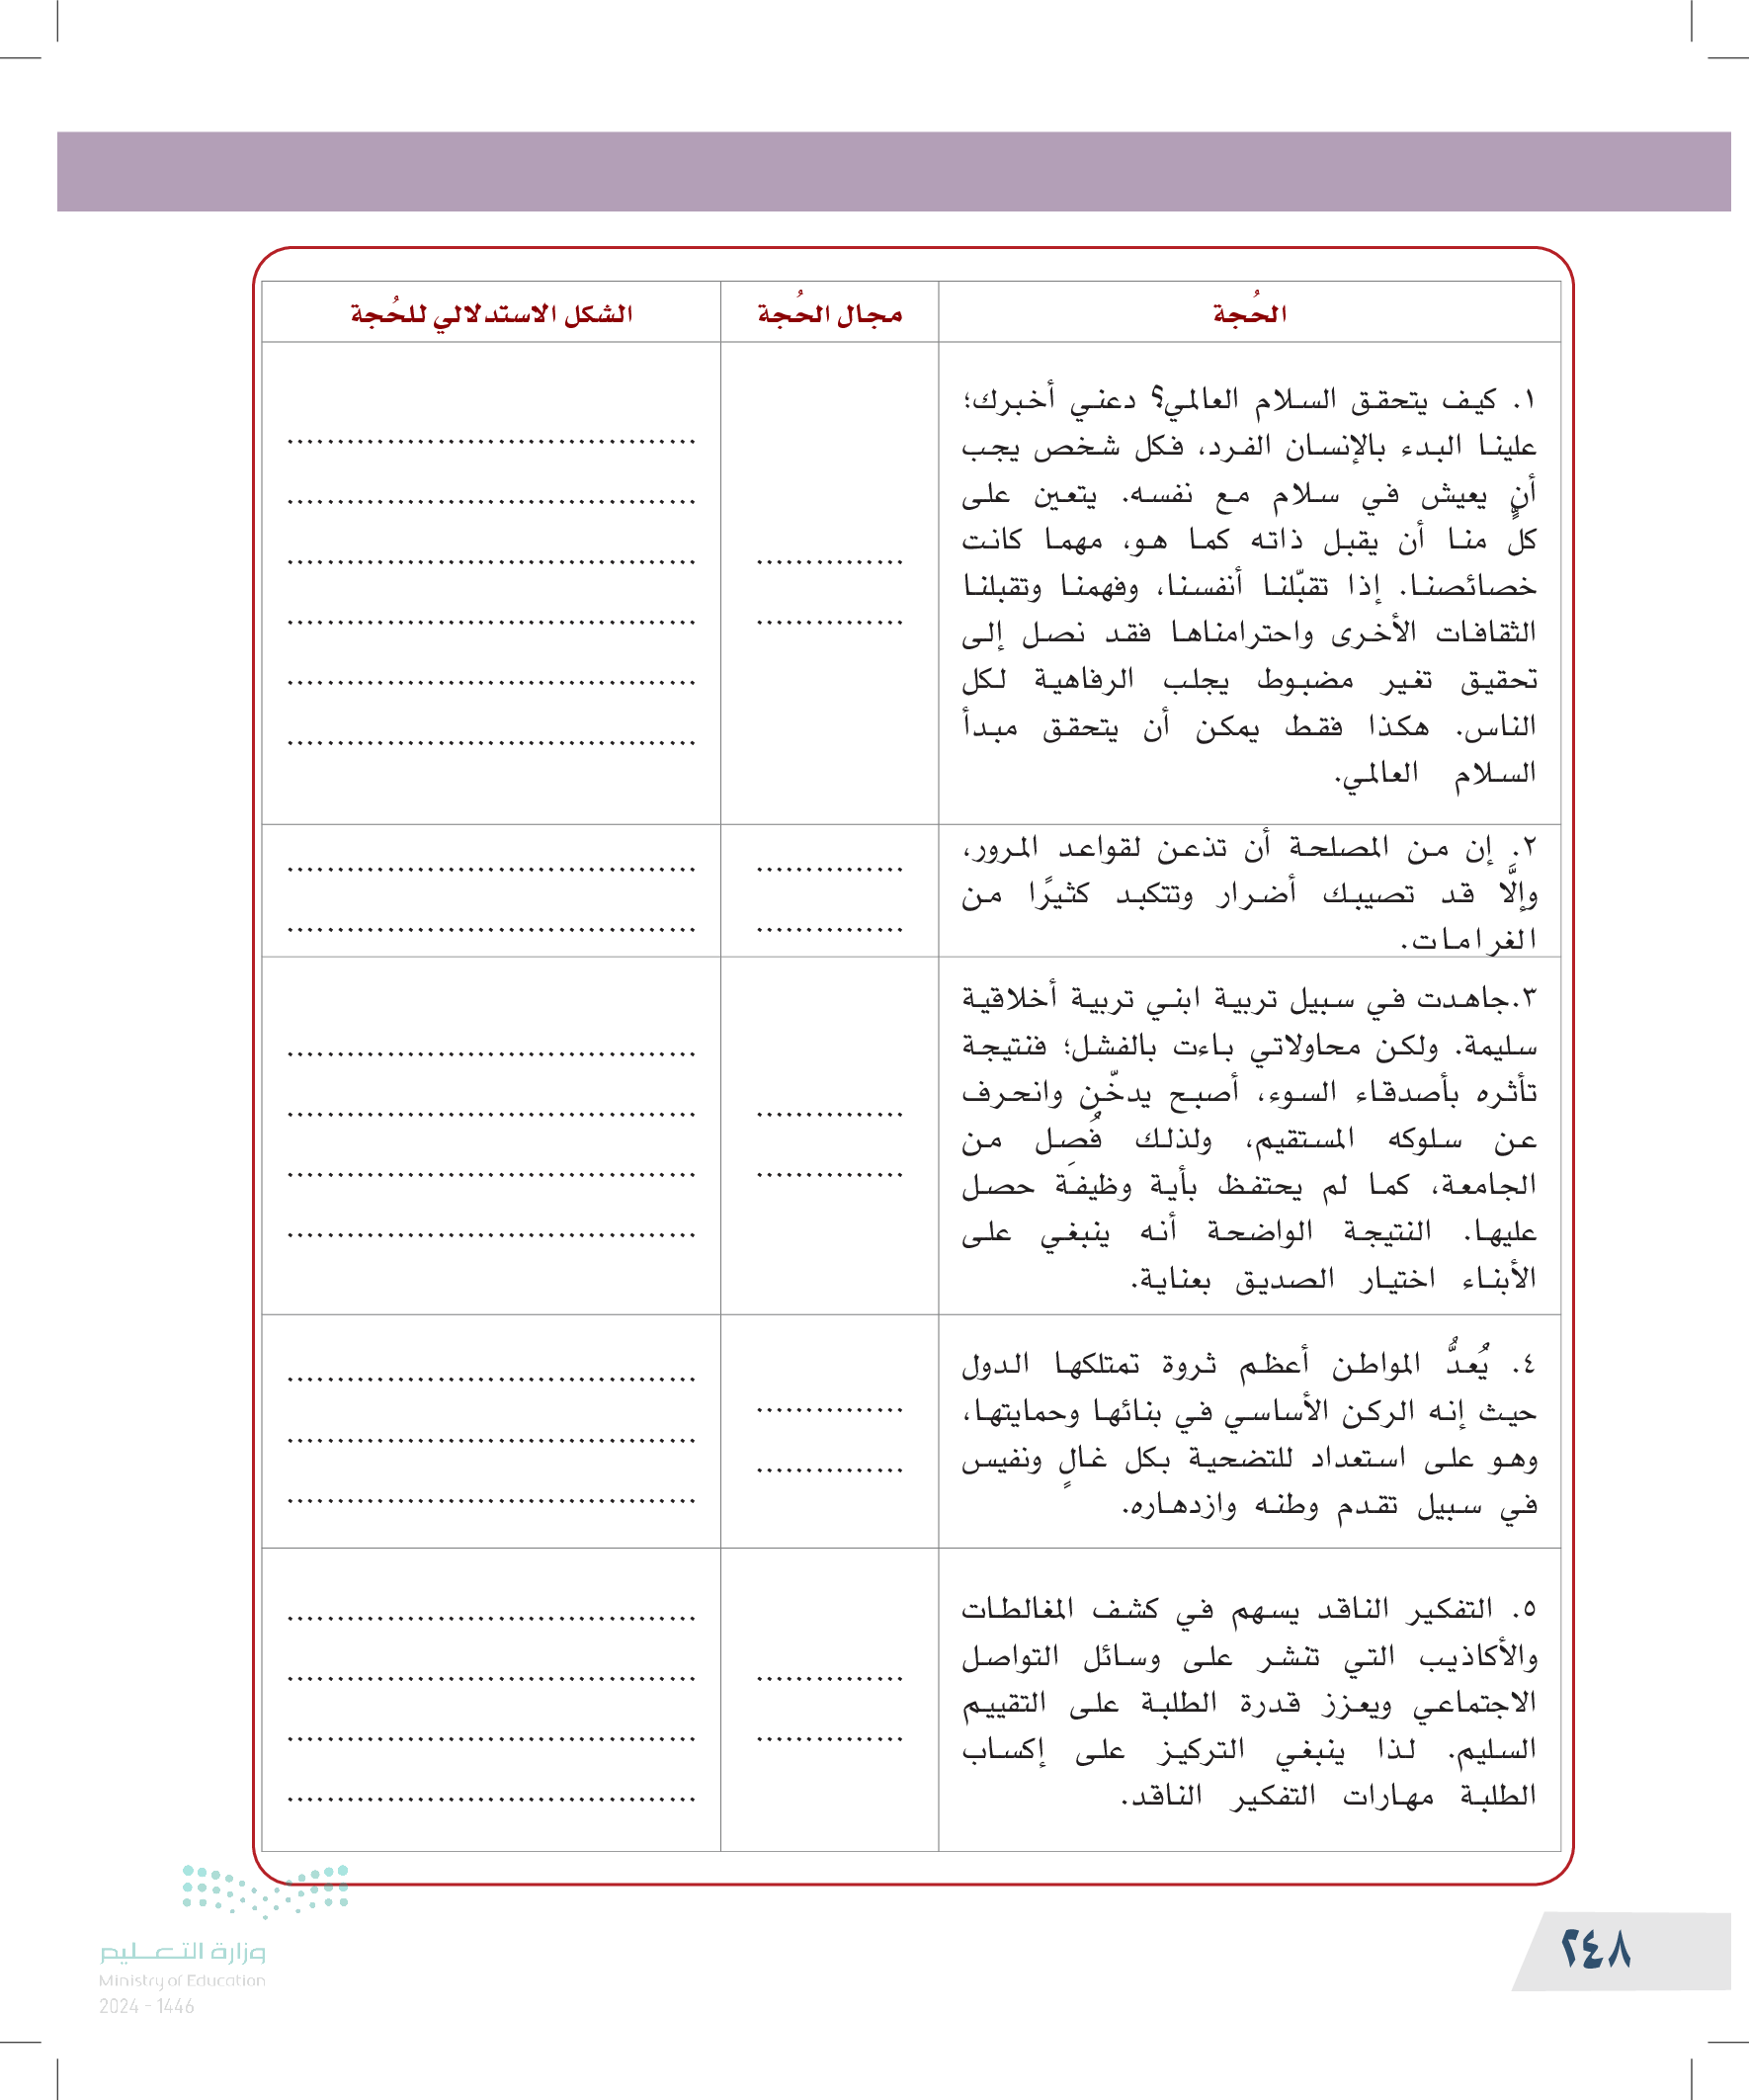 الحُجة
مجال الحُجة
الشكل الاستدلالي للحُجة
١. كيف يتحقق السلام العالمي؟ دعني أخبرك؛
علينا البدء بالإنسان الفرد، فكل شخص يجب
أن يعيش في سلام مع نفسه. يتعين على
كلٍّ منا أن يقبل ذاته كما هو، مهما كانت
خصائصنا. إذا تقبّلنا أنفسنا، وفهمنا وتقبلنا
الثقافات الأخرى واحترامناها فقد نصل إلى
تحقيق تغير مضبوط يجلب الرفاهية لكل
الناس. هكذا فقط يمكن أن يتحقق مبدأ
السلام العالمي.
........................................
........................................
........................................
........................................
........................................
........................................
...............
...............
٢. إن من المصلحة أن تذعن لقواعد المرور،
وإلَّا قد تصيبك أضرار وتتكبد كثيرًا من
الغرامات.
...............
...............
........................................
........................................
٣.جاهدت في سبيل تربية ابني تربية أخلاقية
سليمة. ولكن محاولاتي باءت بالفشل؛ فنتيجة
تأثره بأصدقاء السوء، أصبح يدخّن وانحرف
عن سلوكه المستقيم، ولذلك فُصِل من
الجامعة، كما لم يحتفظ بأية وظيفة حصل
عليها. النتيجة الواضحة أنه ينبغي على
الأبناء اختيار الصديق بعناية.
...............
...............
........................................
........................................
........................................
........................................
٤. يُعدُّ المواطن أعظم ثروة تمتلكها الدول
حيث إنه الركن الأساسي في بنائها وحمايتها،
وهو على استعداد للتضحية بكل غالٍ ونفيس
في سبيل تقدم وطنه وازدهاره.
...............
...............
........................................
........................................
........................................
٥. التفكير الناقد يسهم في كشف المغالطات
والأكاذيب التي تنشر على وسائل التواصل
الاجتماعي ويعزز قدرة الطلبة على التقييم
السليم. لذا ينبغي التركيز على إكساب
الطلبة مهارات التفكير الناقد.
...............
...............
........................................
........................................
........................................
........................................
وزارة التعليم
Ministry of Education
2024 - 1446
٢٤٨